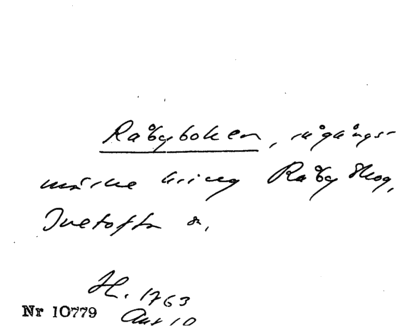 Råbyboken, rågångs-
märke kring Råby skog,
Tuetofta s.
H. 1763
Nr 10779